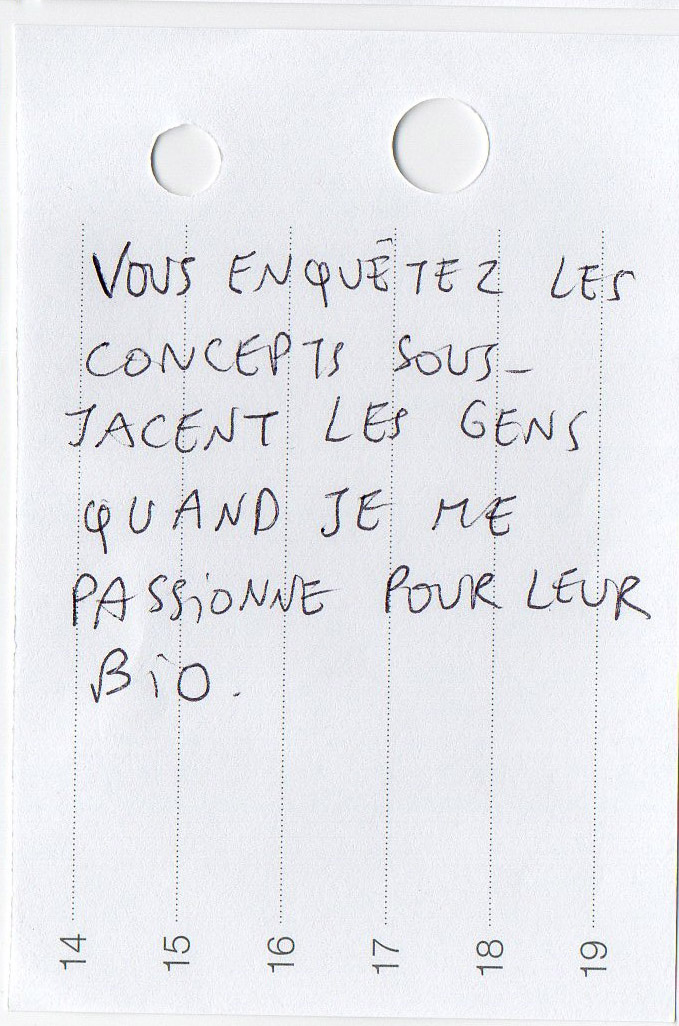 VOUS ENQUÊTEZ LES
CONCEPTS SOUS-
JACENT LES GENS
QUAND JE ME
PASSIONNE POUR LEUR
BIO.
14
15
16
17
18
19